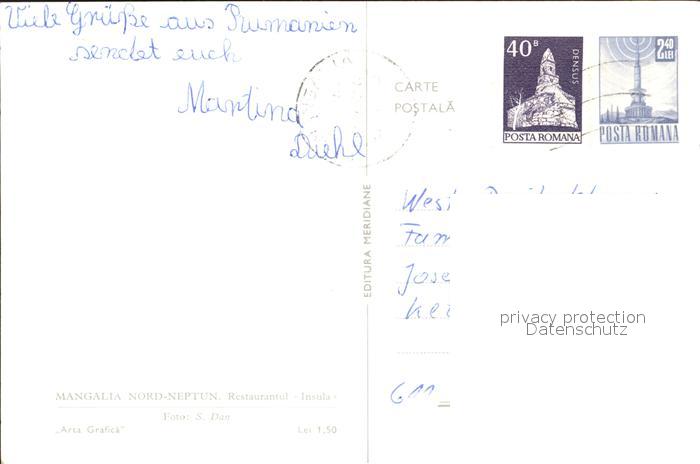 Viele Grüße aus Rumanien
sendet euch
Martina
Diehl
CARTE
POȘTALĂ
40 B
DENSUȘ
POSTA ROMANA
2,40 LEI
POSTA ROMANA
EDITURA MERIDIANE
West
Fam
Jose
611
privacy protection
Datenschutz
MANGALIA NORD-NEPTUN. Restaurantul «Insula»
Foto: S. Dan
„Arta Grafică” Lei 1,50